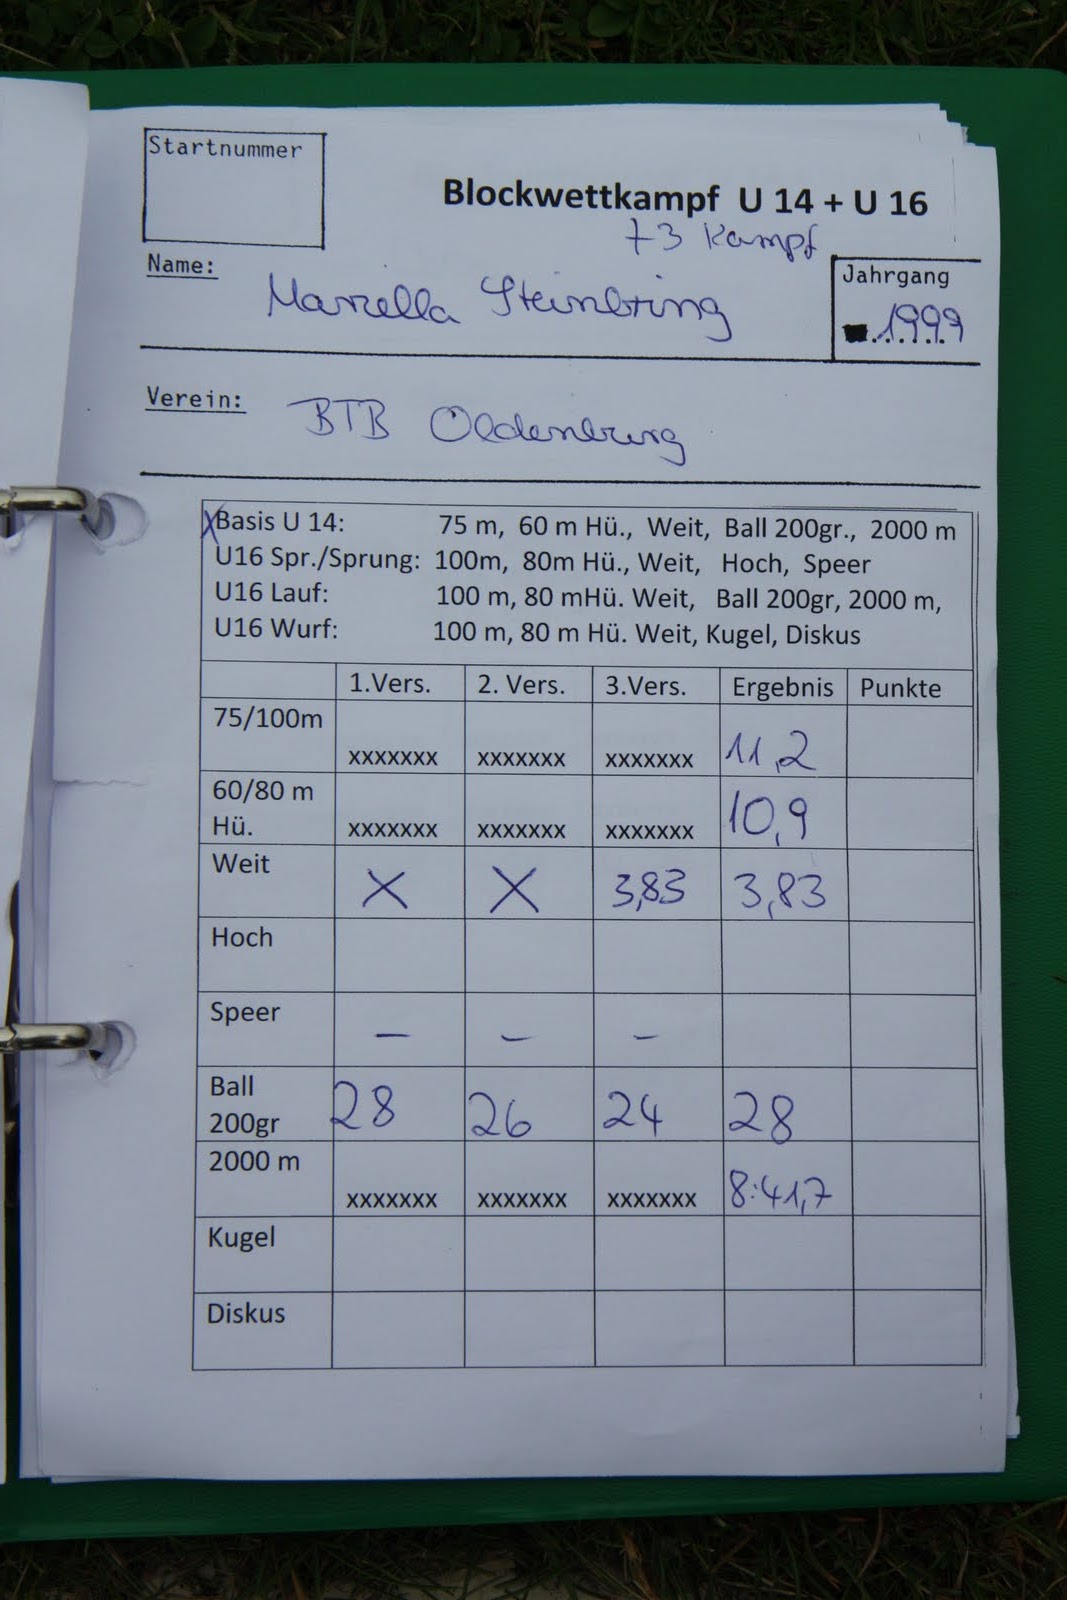 Startnummer
Blockwettkampf U 14 + U 16
+3 Kampf
Name: Marcella Steinbring
Jahrgang
1999
Verein: BTB Oldenburg
X Basis U 14: 75 m, 60 m Hü., Weit, Ball 200gr., 2000 m
U16 Spr./Sprung: 100m, 80m Hü., Weit, Hoch, Speer
U16 Lauf: 100 m, 80 mHü. Weit, Ball 200gr, 2000 m,
U16 Wurf: 100 m, 80 m Hü. Weit, Kugel, Diskus
1.Vers. 2. Vers. 3.Vers. Ergebnis Punkte
75/100m xxxxxxx xxxxxxx xxxxxxx 11,2
60/80 m
Hü. xxxxxxx xxxxxxx xxxxxxx 10,9
Weit X X 3,83 3,83
Hoch
Speer – – –
Ball
200gr 28 26 24 28
2000 m xxxxxxx xxxxxxx xxxxxxx 8:41,7
Kugel
Diskus